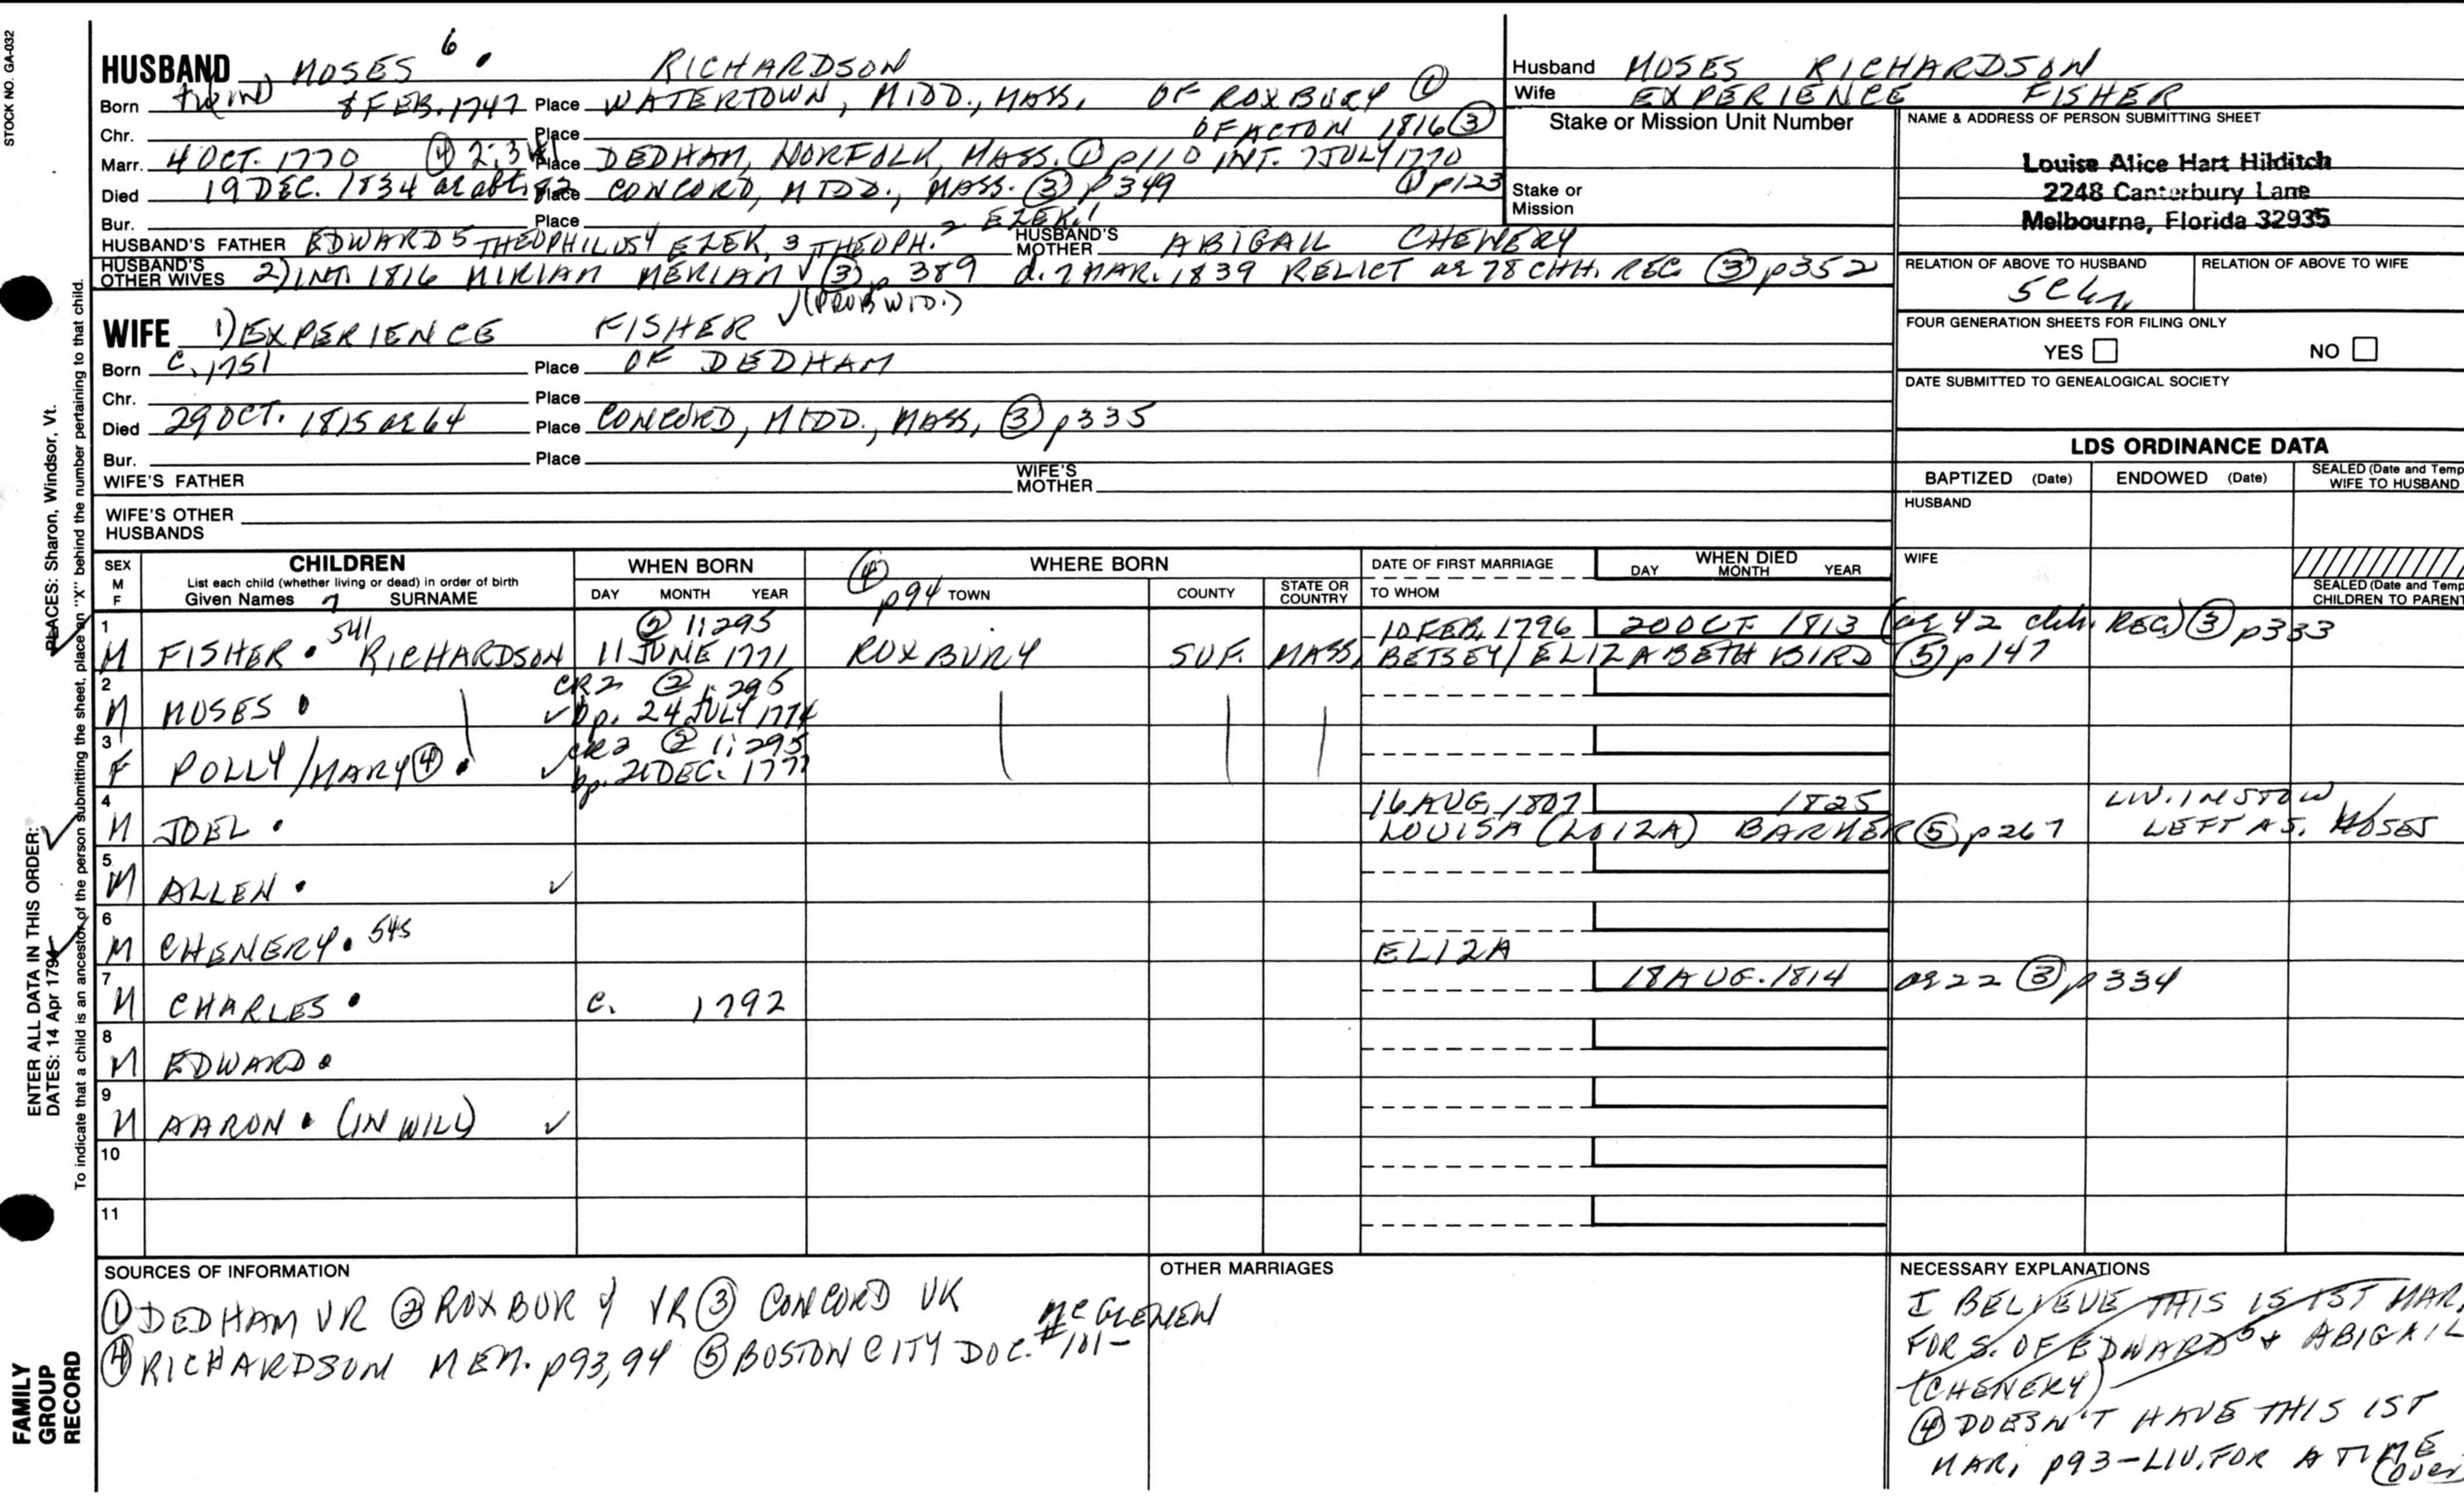 STOCK NO. GA-032
HUSBAND MOSES 6 . RICHARDSON
Born 8 FEB. 1747 Place WATERTOWN, MIDD., MASS. OF ROXBURY ①
Chr. Place OF ACTON 1816 ③
Marr. 4 OCT. 1770 ④ Place DEDHAM, NORFOLK, MASS. ① p110 INT. 7 JULY 1770
Died 19 DEC. 1834 ae abt Place CONCORD, MIDD., MASS. ③ p349 ① p123
Bur. Place
HUSBAND'S FATHER EDWARD 5 THEOPHILUS 4 EZEK. 3 THEOPH. 2 EZEK. 1 HUSBAND'S MOTHER ABIGAIL CHENERY
HUSBAND'S OTHER WIVES 2) INT. 1816 MIRIAM MERIAM ✓ ③ p 389 d. 7 MAR. 1839 RELICT ae 78 CHH. REC. ③ p352
✓ (PROB WID.)
WIFE 1) EXPERIENCE FISHER
Born C. 1751 Place OF DEDHAM
Chr. Place
Died 29 OCT. 1815 ae 64 Place CONCORD, MIDD., MASS, ③ p335
Bur. Place
WIFE'S FATHER WIFE'S MOTHER
WIFE'S OTHER HUSBANDS
Husband MOSES RICHARDSON
Wife EXPERIENCE FISHER
Stake or Mission Unit Number
Stake or Mission
NAME & ADDRESS OF PERSON SUBMITTING SHEET
Louise Alice Hart Hilditch
2248 Canterbury Lane
Melbourne, Florida 32935
RELATION OF ABOVE TO HUSBAND RELATION OF ABOVE TO WIFE
FOUR GENERATION SHEETS FOR FILING ONLY
YES NO
DATE SUBMITTED TO GENEALOGICAL SOCIETY
LDS ORDINANCE DATA
BAPTIZED (Date) ENDOWED (Date) SEALED (Date and Temp
WIFE TO HUSBAND
HUSBAND
WIFE
SEALED (Date and Temp
CHILDREN TO PARENT
SEX M F CHILDREN WHEN BORN ④ p94 WHERE BORN DATE OF FIRST MARRIAGE WHEN DIED
List each child (whether living or dead) in order of birth
Given Names 7 SURNAME DAY MONTH YEAR TOWN COUNTY STATE OR COUNTRY TO WHOM DAY MONTH YEAR
1 ② 1:295 10 FEB. 1796 20 OCT. 1813 (ae 42 chh. REC.) ③ p333
M FISHER . 541 RICHARDSON 11 JUNE 1771 ROXBURY SUF. MASS. BETSEY/ELIZABETH BIRD ⑤ p147
2 CR2 ② 1:295
M MOSES . ✓ bp. 24 JULY 1774
3 CR2 ② 1:295
F POLLY/MARY ④ . ✓ bp. DEC. 1777
4 16 AUG. 1807 1825 LIV. IN STOW
M JOEL . LOUISA (LOIZA) BARKER ⑤ p267 LEFT AS. MOSES
5
M ALLEN . ✓
6
M CHENERY . 545 ELIZA
7 18 AUG. 1814 ae 22 ③ p334
M CHARLES . C. 1792
8
M EDWARD .
9
M AARON . (IN WILL) ✓
10
11
SOURCES OF INFORMATION
① DEDHAM VR ② ROXBURY VR ③ CONCORD VR
④ RICHARDSON MEM. p93,94 ⑤ BOSTON CITY DOC. #101- MCGLENEN
OTHER MARRIAGES
NECESSARY EXPLANATIONS
I BELIEVE THIS IS 1ST MAR.
FOR S. OF EDWARD 5 & ABIGAIL
(CHENERY)
④ DOESN'T HAVE THIS 1ST
MAR, p93-LIV. FOR A TIME
(over
ENTER ALL DATA IN THIS ORDER:
DATES: 14 Apr 1794 PLACES: Sharon, Windsor, Vt.
To indicate that a child is an ancestor of the person submitting the sheet, place an "X" behind the number pertaining to that child.
FAMILY
GROUP
RECORD